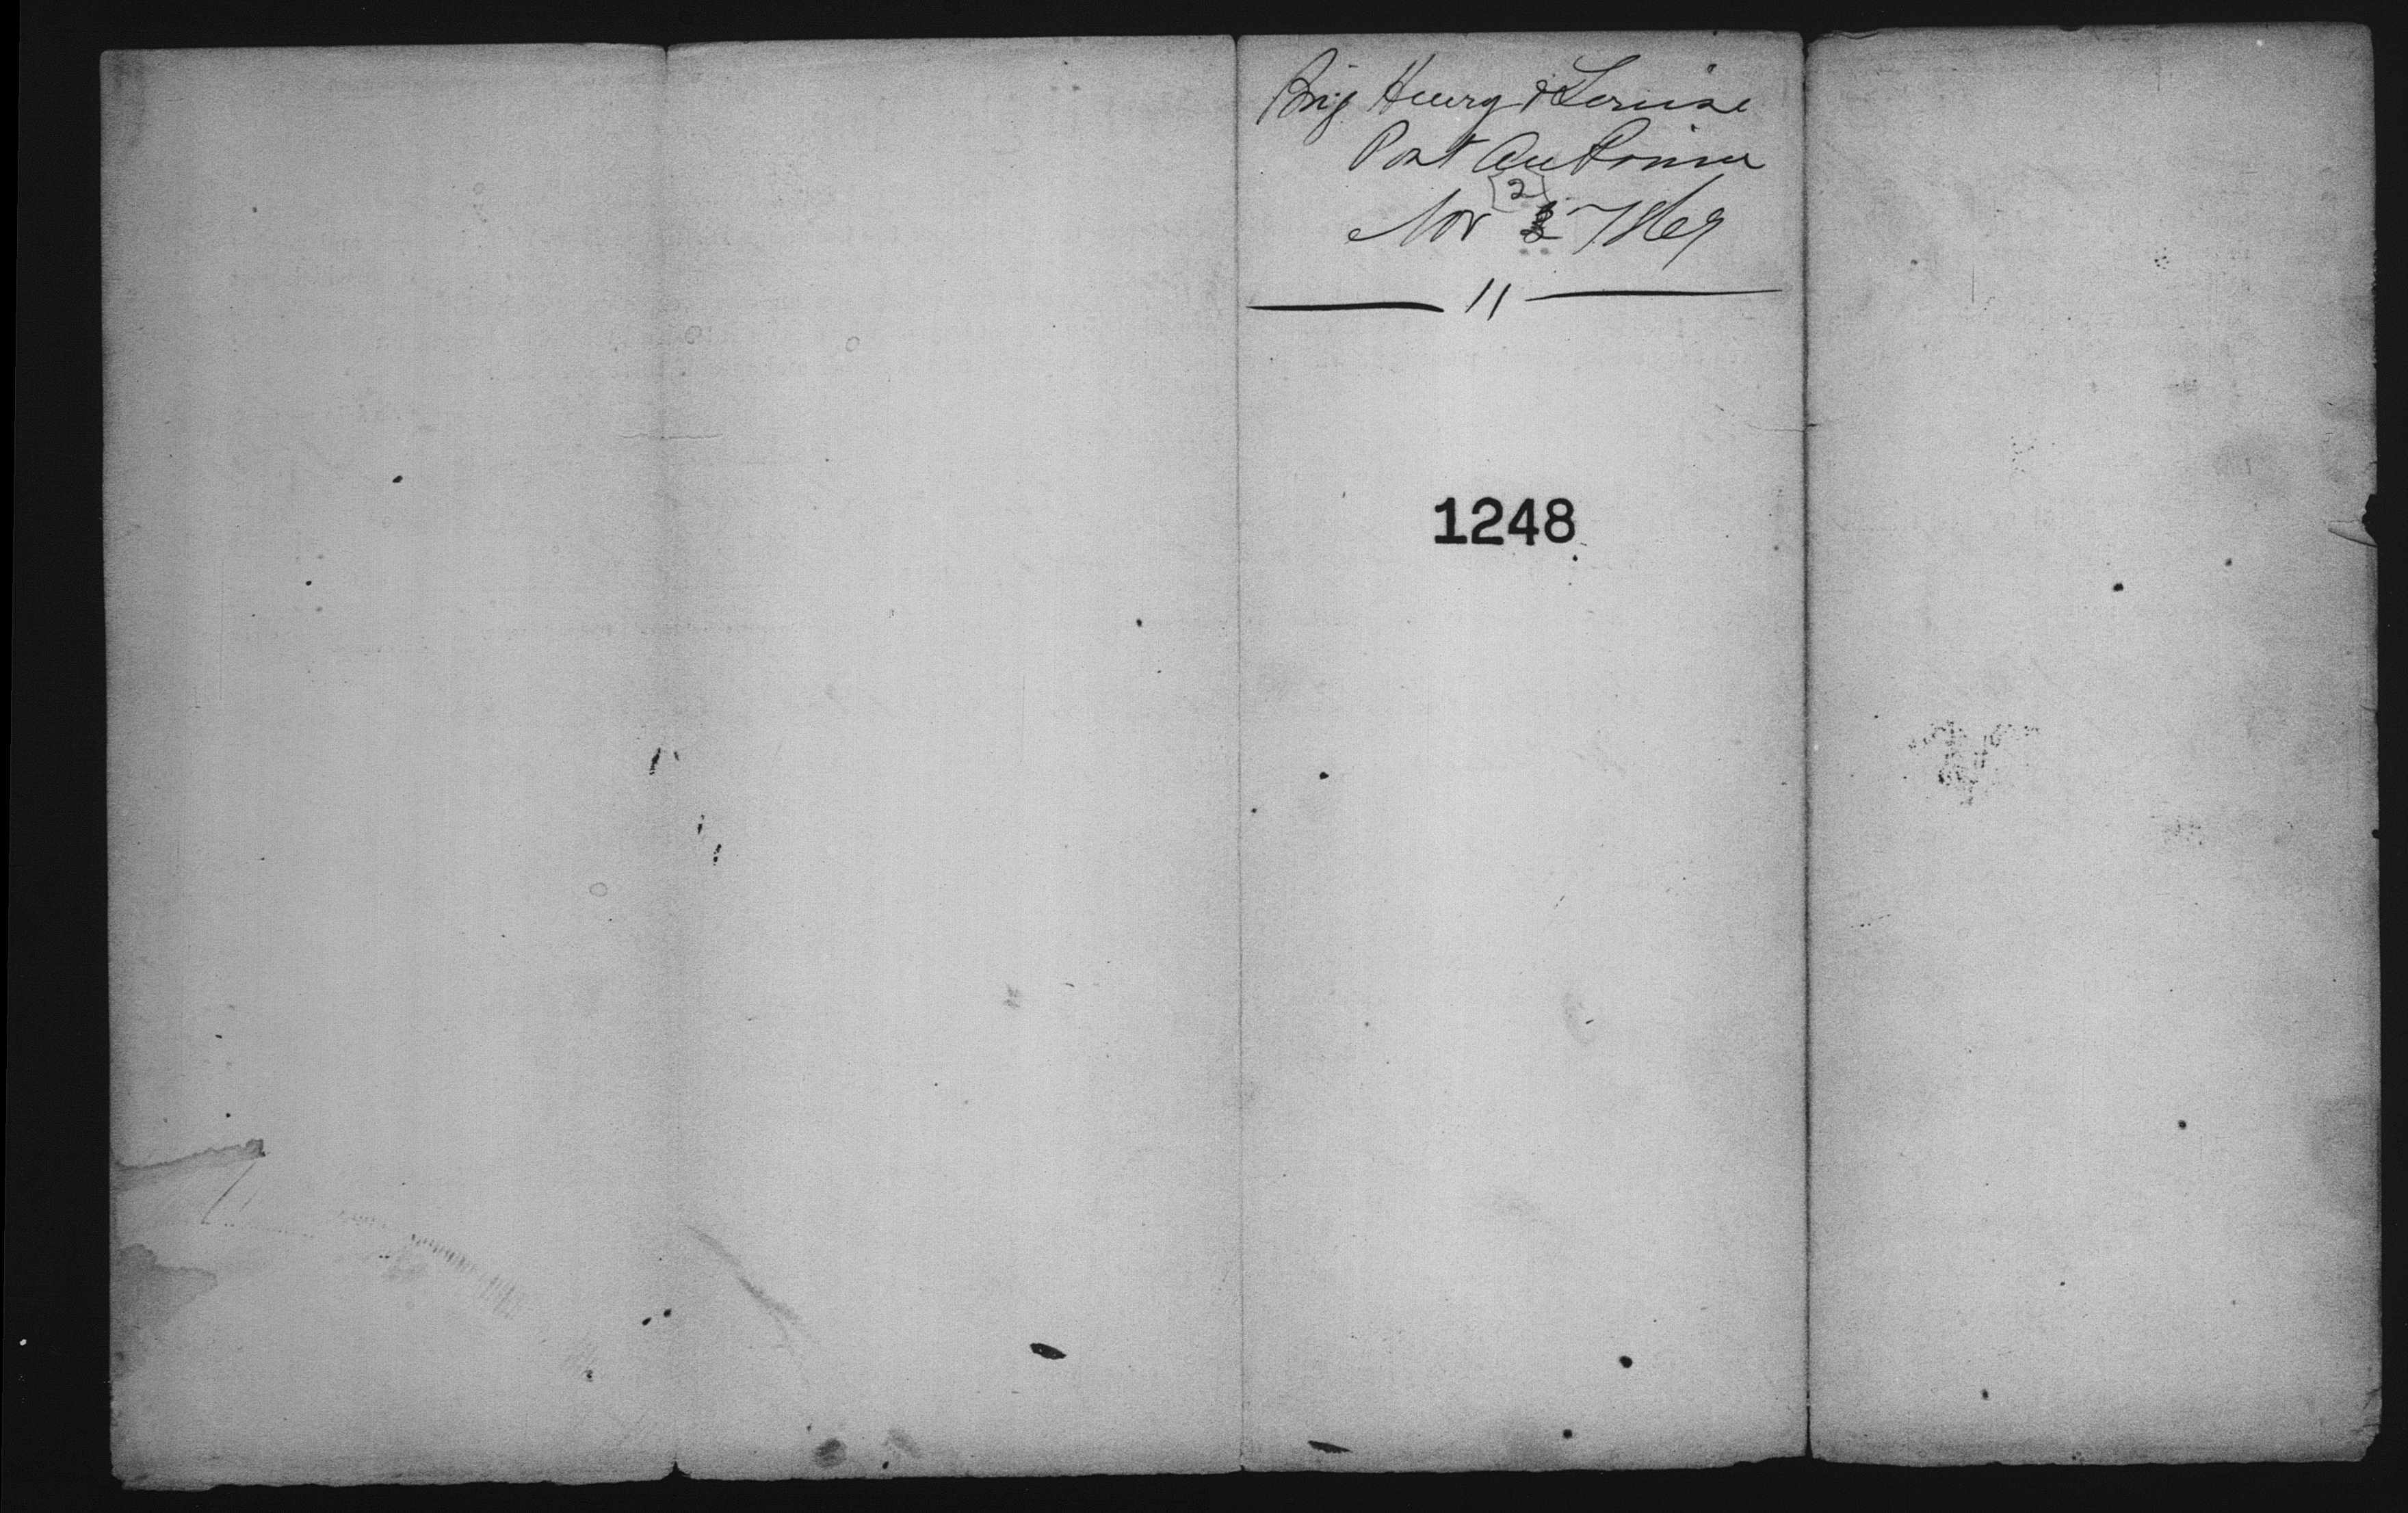 Brig Henry & Louise
Port Antonio
2
Nov 27 1869
11
1248